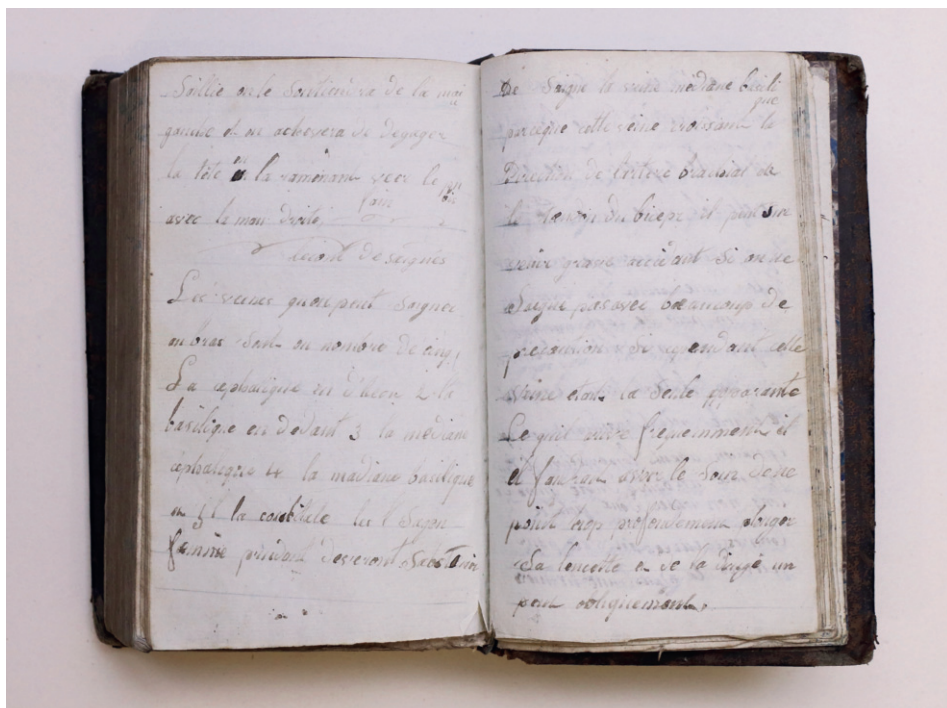 Saillie on le Soutiendra de la mai
n
gauche et on achevera de Degager
la tête en la ramenant vers le pu
bis
avec la main droite
fain
lecont De saignés
Les veines quon peut Saigner
au bras Sont au nombre de cinq
La cephalique en Dehor 2 la
basilique en dedant 3 la mediane
cephalique 4 la mediane basilique
en 5 la cubitale les Sagon
femme prudent devront Sabstenir
De Saigne la veine mediane basili
que
parceque cette veine croissant la
Direction de lartere brachial de
le tendon du bicepe il peut sur
venir grave accidant Si on ne
Saigne pas avec beaucoup de
precaution cependant cette
veine etant la Seule apparante
Ce qui arive frequenment il
il faudra avoir le Soin de ne
point trop profondement plonger
Sa lencette et de la dirigé un
peut obliquement.